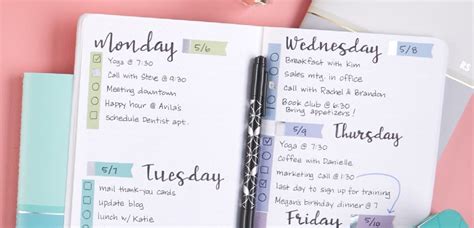 Monday 5/6
Yoga @ 7:30
Call with Steve @ 9:30
Meeting downtown
Happy hour @ Avila's
schedule Dentist apt.
5/7
Tuesday
mail thank-you cards
update blog
lunch w/ Katie
Wednesday 5/8
Breakfast with Kim
Sales mtg. in office
call with Rachel & Brandon
Book club @ 6:30
Bring appetizers!
5/9 Thursday
Yoga @ 7:30
Coffee with Danielle
marketing call @ 1:30
last day to sign up for training
Megan's birthday dinner @ 7
Friday 5/10